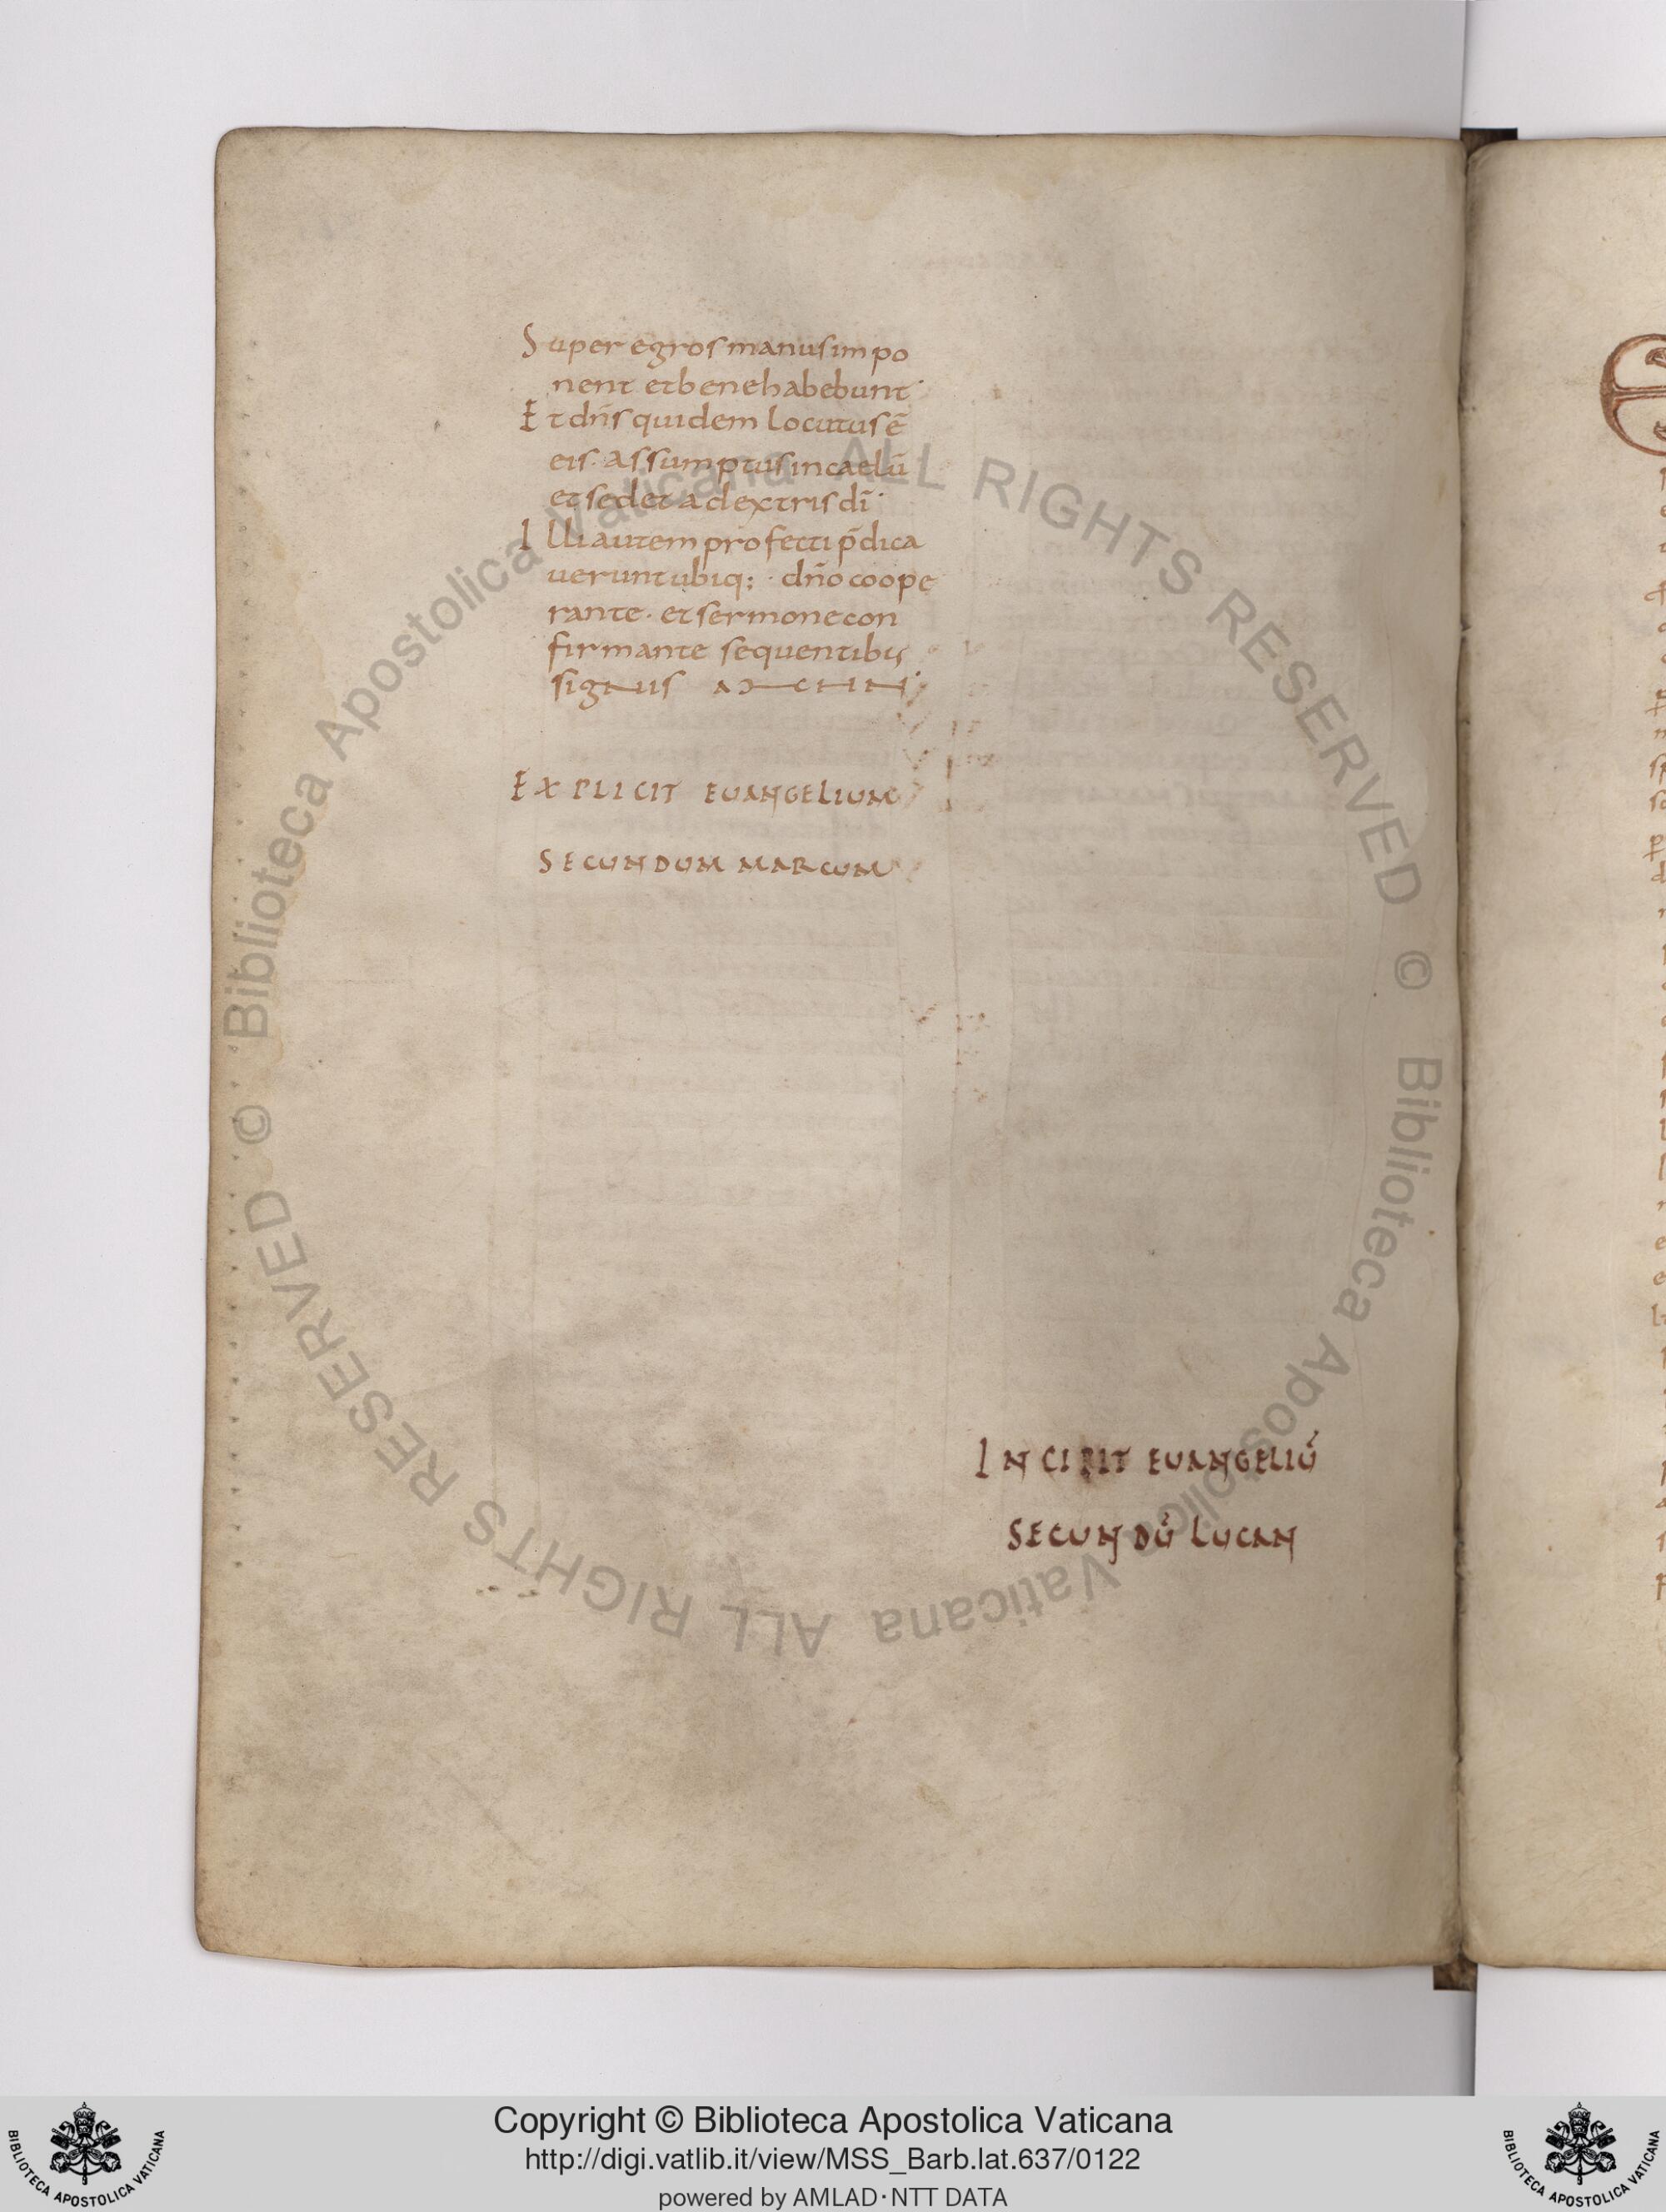 Super egros manus impo
nent et bene habebunt·
Et dn̄s quidem locutus ē
eis· assumptus in caelū
et sedet a dextris dī·
Illi autem profecti p̄dica
uerunt ubiq;· dn̄o coope
rante· et sermone con
firmante sequentibus
signis AMEN
EXPLICIT EUANGELIUM
SECUNDUM MARCUM
INCIPIT EUANGELIŪ
SECUNDŪ LUCAN
© Biblioteca Apostolica Vaticana ALL RIGHTS RESERVED
© Biblioteca Apostolica Vaticana ALL RIGHTS RESERVED
BIBLIOTECA APOSTOLICA VATICANA
Copyright © Biblioteca Apostolica Vaticana
http://digi.vatlib.it/view/MSS_Barb.lat.637/0122
powered by AMLAD·NTT DATA
BIBLIOTECA APOSTOLICA VATICANA